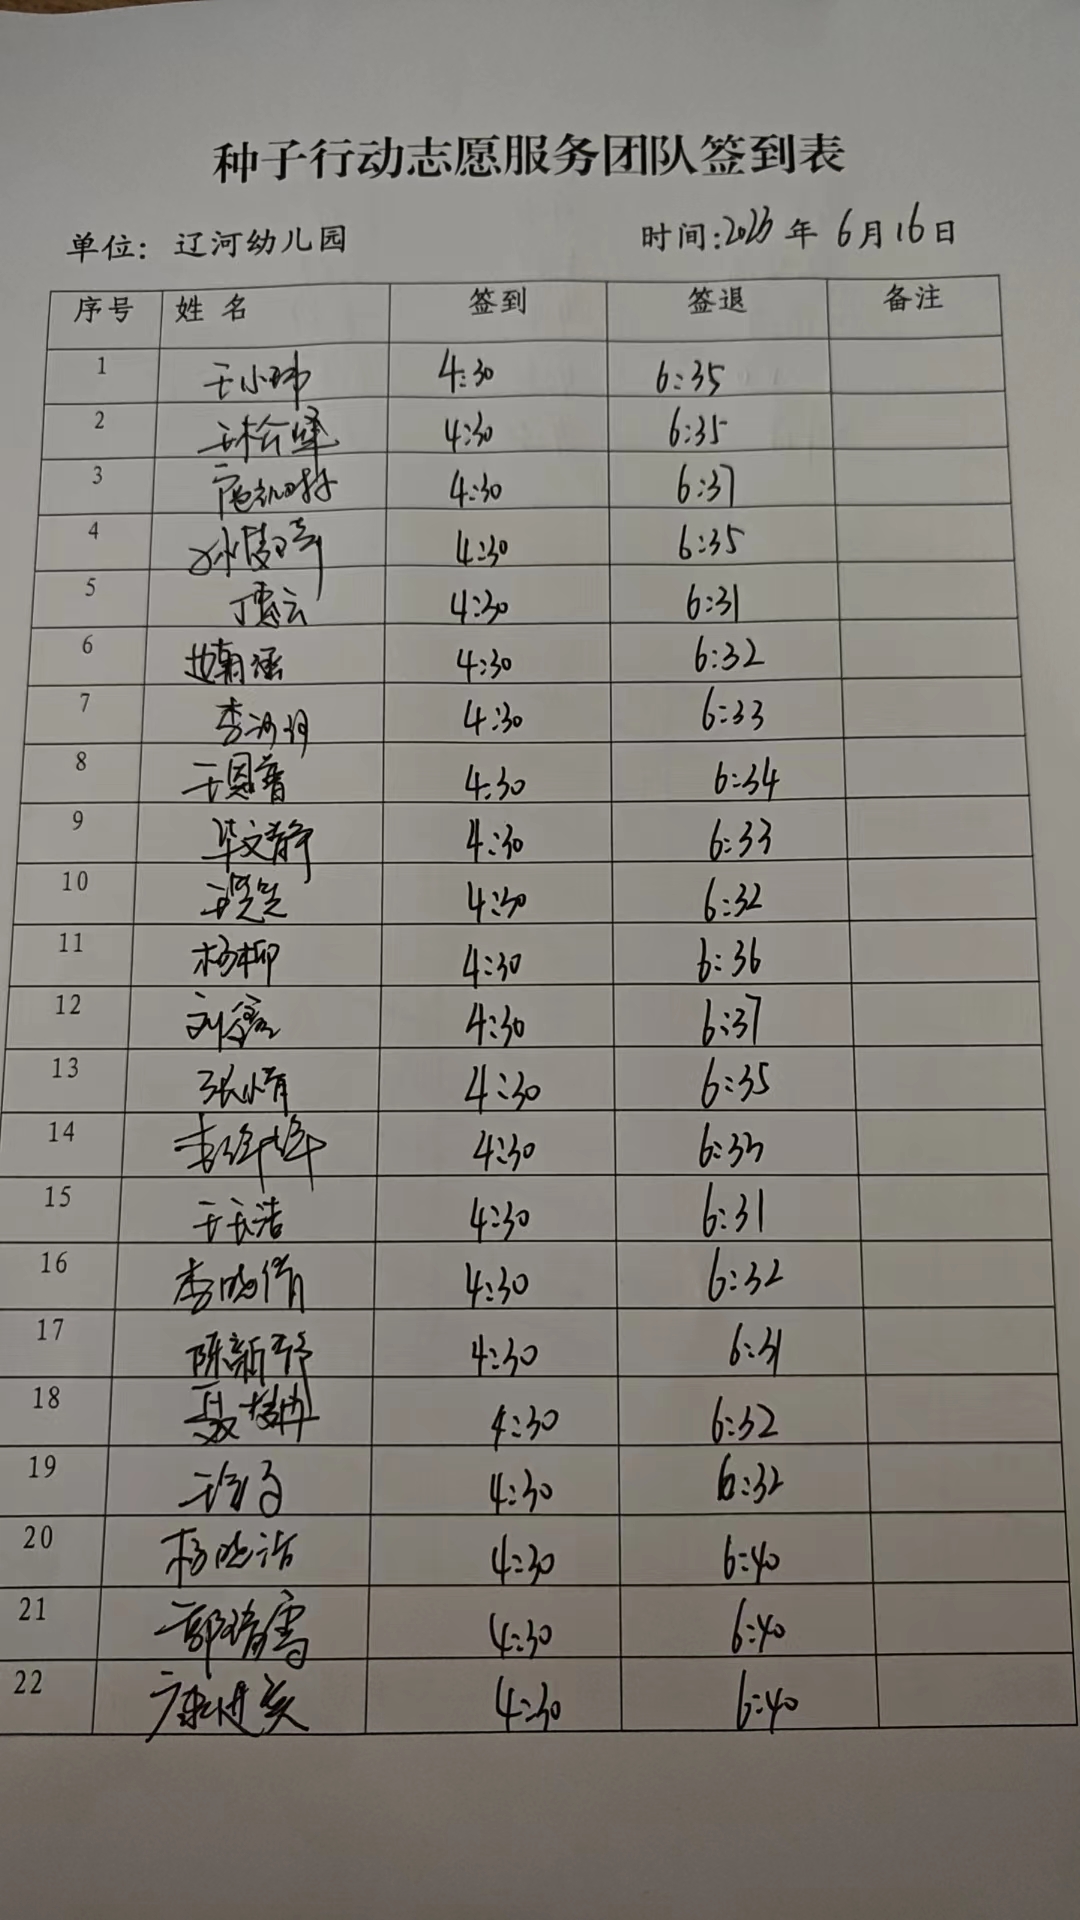 种子行动志愿服务团队签到表
单位：辽河幼儿园 时间：2023年6月16日
序号 姓名 签到 签退 备注
1 王小玮 4:30 6:35
2 4:30 6:35
3 4:30 6:37
4 4:30 6:35
5 丁惠云 4:30 6:31
6 4:30 6:32
7 4:30 6:33
8 王恩普 4:30 6:34
9 毕文静 4:30 6:33
10 4:30 6:32
11 杨柳 4:30 6:36
12 刘鑫 4:30 6:37
13 张婧 4:30 6:35
14 李婷婷 4:30 6:33
15 于长浩 4:30 6:31
16 李晓倩 4:30 6:32
17 陈新舒 4:30 6:31
18 4:30 6:32
19 4:30 6:32
20 杨晓洁 4:30 6:40
21 4:30 6:40
22 康进美 4:30 6:40